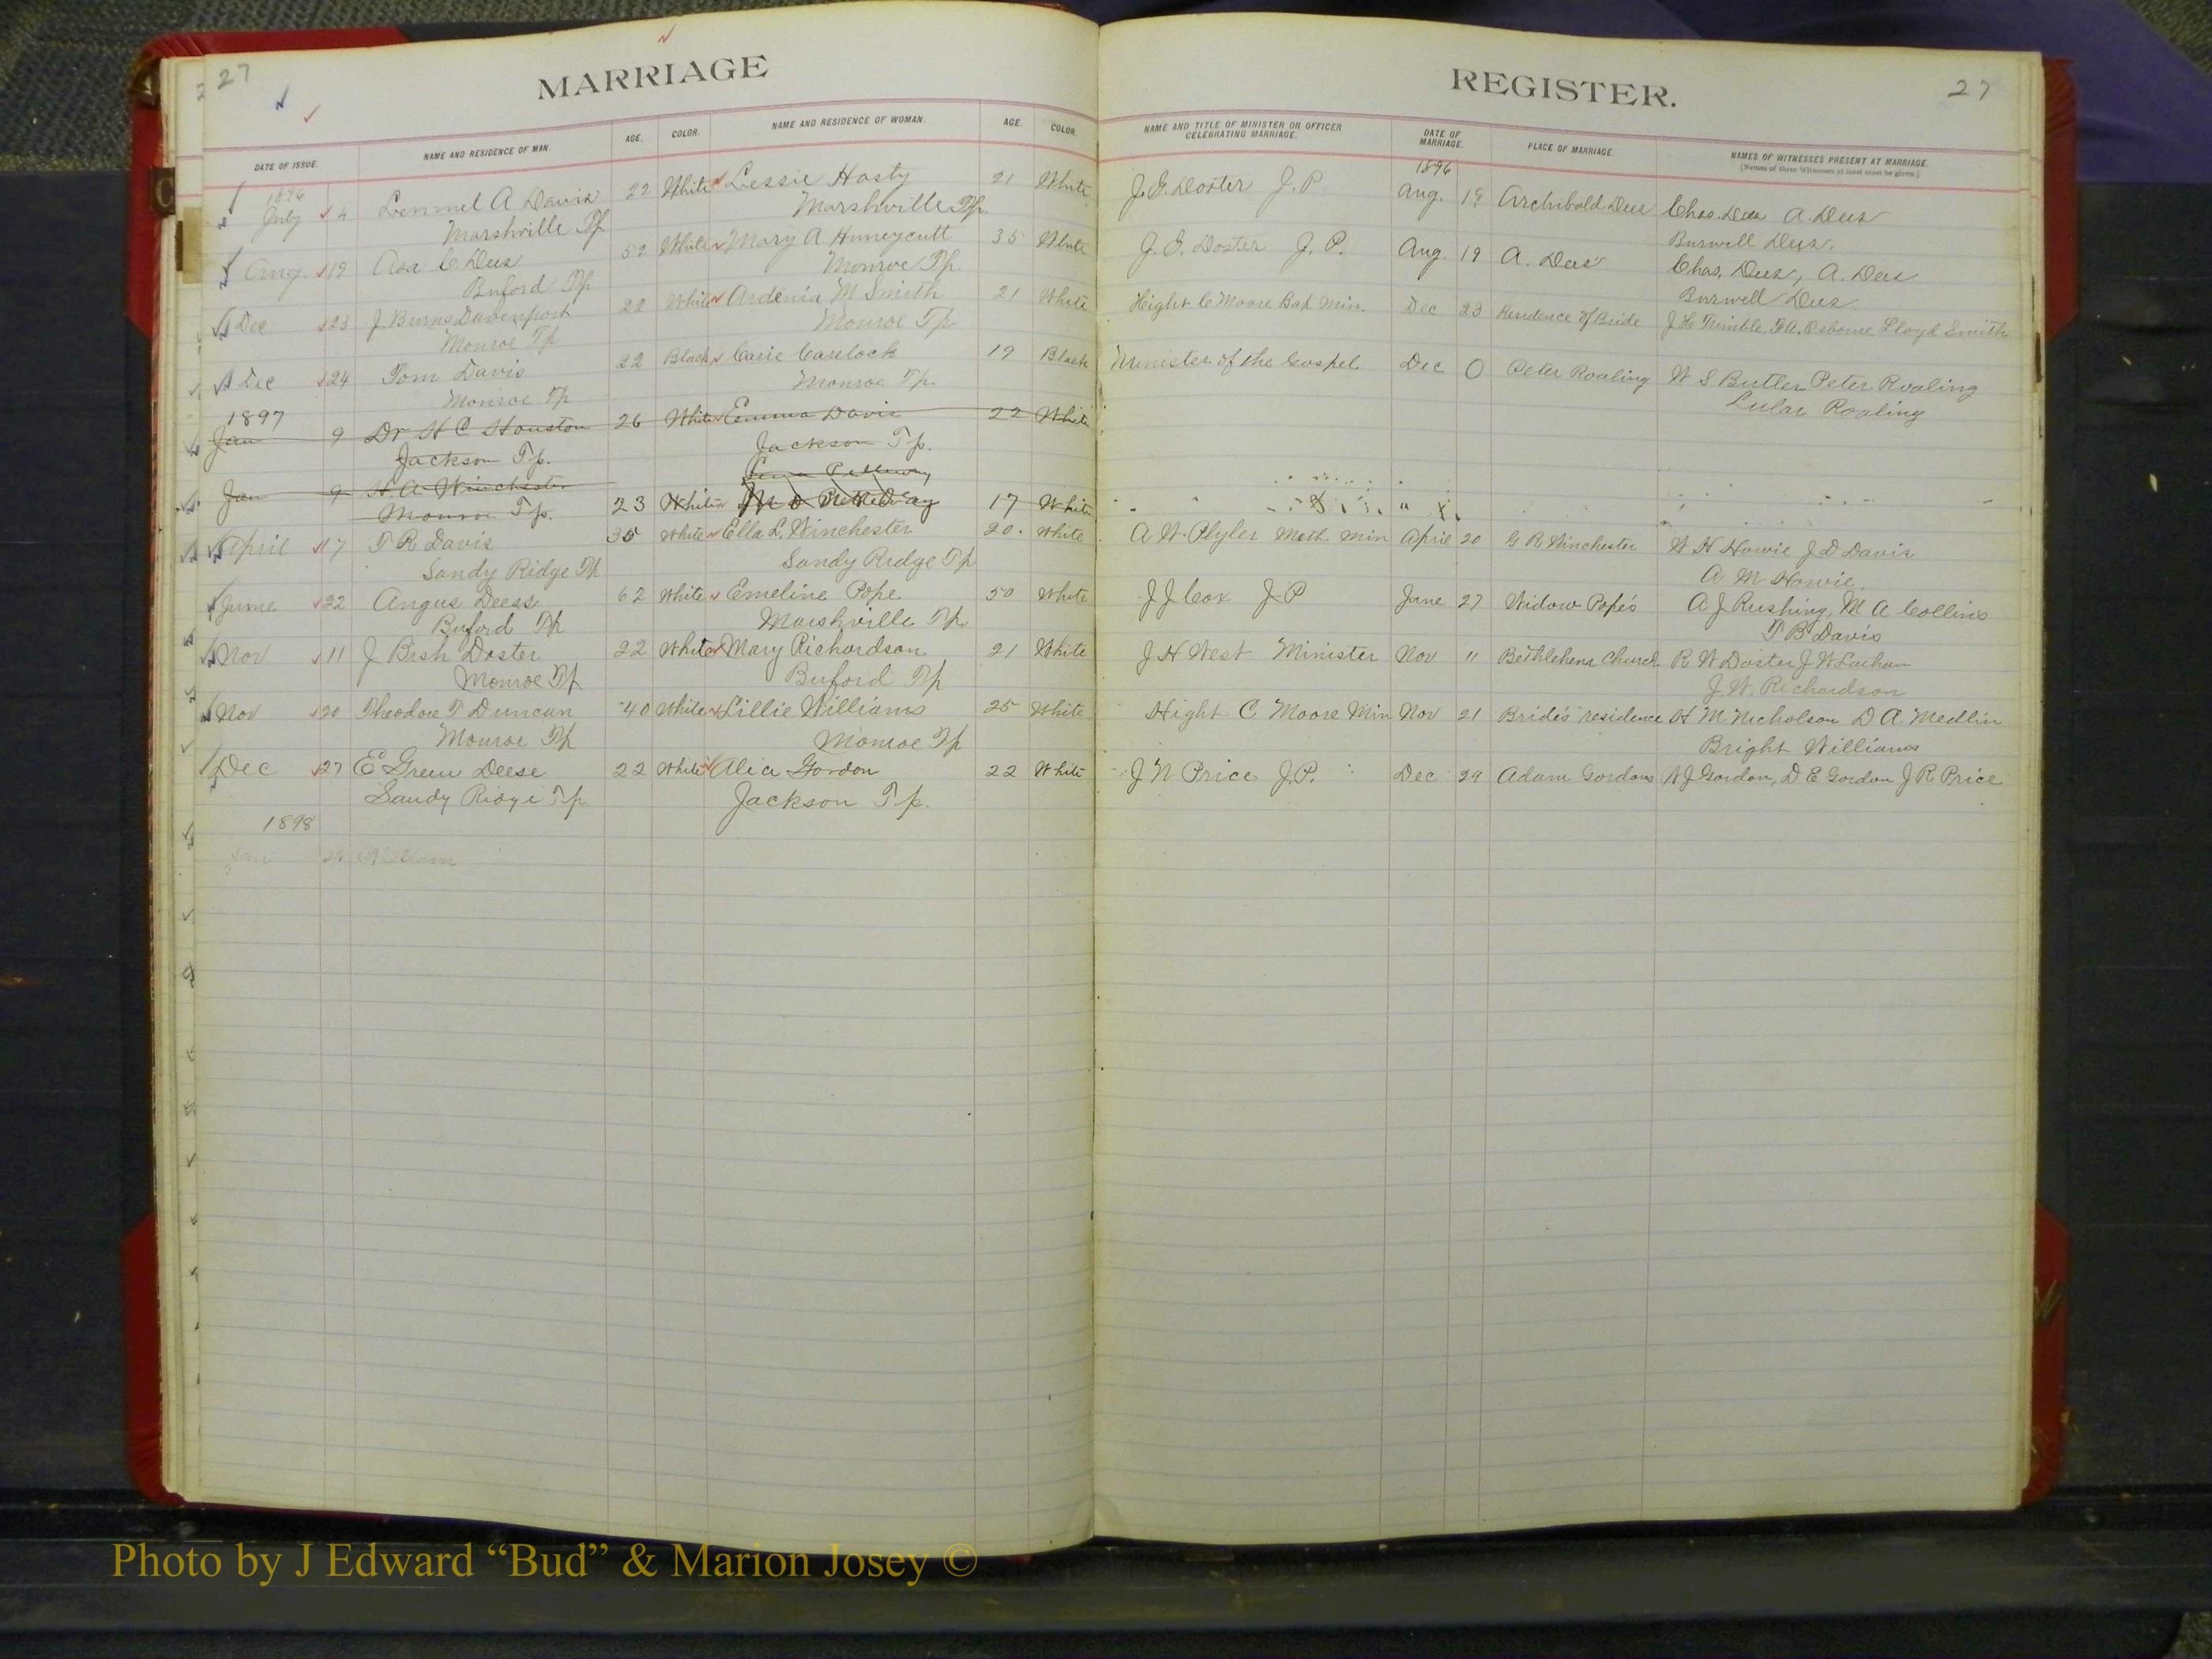 27
MARRIAGE
REGISTER.
27
DATE OF ISSUE.
NAME AND RESIDENCE OF MAN.
AGE.
COLOR.
NAME AND RESIDENCE OF WOMAN.
AGE.
COLOR.
NAME AND TITLE OF MINISTER OR OFFICER
CELEBRATING MARRIAGE.
DATE OF
MARRIAGE.
PLACE OF MARRIAGE.
NAMES OF WITNESSES PRESENT AT MARRIAGE.
[Names of three Witnesses at least must be given.]
1896 1896
July 4 Lemmel A Davis 22 White Lessie Hasty 21 White J. E. Doster J. P. Aug. 19 Archibald Dees Chas. Dees A. Dees
Marshville Tp Marshville Tp Burwell Dees.
Aug. 19 Asa C Dees 52 White Mary A Huneycutt 35 White J. E. Doster J. P. Aug. 19 A. Dees Chas. Dees, A. Dees
Buford Tp Monroe Tp. Burwell Dees
Dec 23 J. Burns Davenport 22 White Ardenia M Smith 21 White Hight C Moore Bap Min. Dec 23 Residence of Bride J H Trimble, F A. Osborne Lloyd Smith
Monroe Tp Monroe Tp
Dec 24 Tom Davis 22 Black Carie Carelock 19 Black Minister of the Gospel Dec 0 Peter Roaling W S Butler Peter Roaling
Monroe Tp Monroe Tp. Lular Roaling
1897
Jan 9 Dr H C Houston 26 White Emma Davis 22 White
Jackson Tp. Jackson Tp.
Jan 9 H. A. Winchester 23 White 17 White
Monroe Tp.
April 17 T R Davis 35 White Ella L. Winchester 20. White A W Plyler Meth. Min April 20 G R Winchester W H Howie J D Davis
Sandy Ridge Tp Sandy Ridge Tp A M Howie.
June 22 Angus Deess 62 White Emeline Pope 50 White J J Cox J P June 27 Widow Pope's A J Rushing, M A Collins
Buford Tp Marshville Tp. T B Davis
Nov 11 J Bish Doster 22 White Mary Richardson 21 White J H West Minister Nov 11 Bethlehem Church R W Doster J W
Monroe Tp Buford Tp J. W. Richardson
Nov 20 Theodore T Duncan 40 White Lillie Williams 25 White Hight C Moore Min Nov 21 Bride's residence H M Nicholson D A Medlin
Monroe Tp Monroe Tp Bright Williams
Dec 27 E Green Deese 22 White Alice Gordon 22 White J N Price J.P. Dec 29 Adam Gordons W J Gordon, D E Gordon J R Price
Sandy Ridge Tp Jackson Tp.
1898
Jan
Photo by J Edward “Bud” & Marion Josey ©